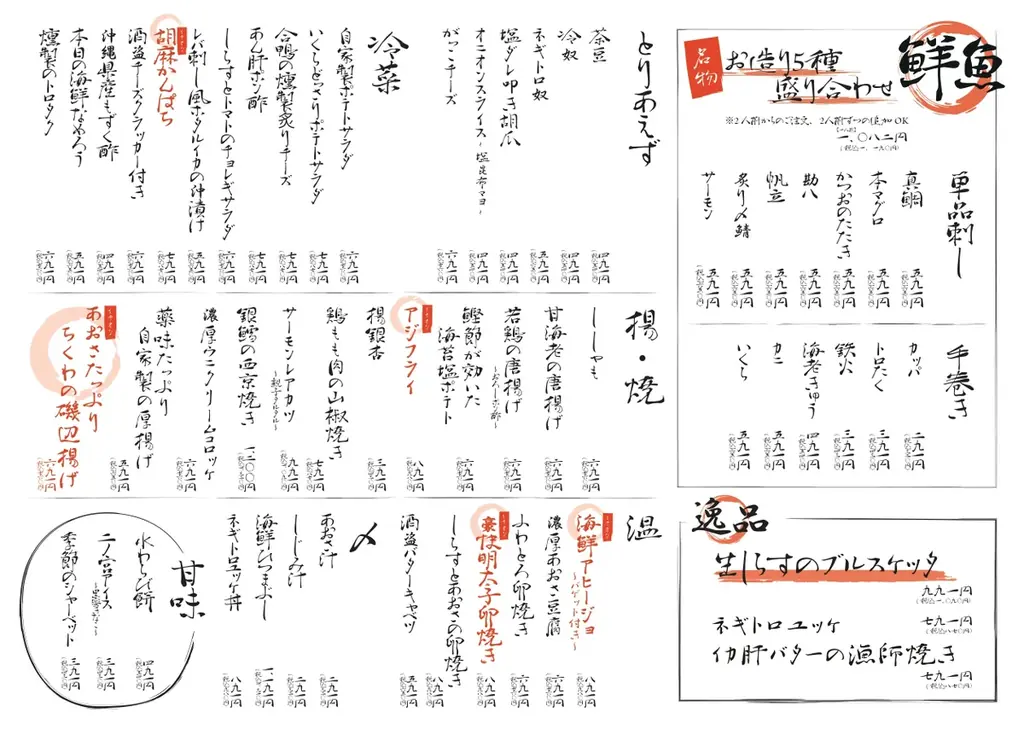 鮮魚
名物
お造り5種
盛り合わせ
※2人前からのご注文、2人前ずつの追加OK
一、〇八二円
(税込一、一九〇円)
単品刺し
真鯛 五九一円
本マグロ 七九一円
かつおのたたき 六九一円
勘八 五九一円
帆立 五九一円
炙り〆鯖 五九一円
サーモン 五九一円
手巻き
カッパ 二九一円
トロたく 三九一円
鉄火 三九一円
海老きゅう 四九一円
カニ 五九一円
いくら 五九一円
逸品
生しらすのブルスケッタ
九九一円
(税込一、〇九〇円)
ネギトロユッケ
七九一円
(税込八七〇円)
イカ肝バターの漁師焼き
七九一円
(税込八七〇円)
とりあえず
茶豆 四九一円
冷奴 四九一円
ネギトロ奴 五九一円
塩ダレ叩き胡瓜 四九一円
オニオンスライス〜塩昆布マヨ〜 四九一円
がっこチーズ 六九一円
冷菜
自家製ポテトサラダ 六九一円
いくらどっさりポテトサラダ 七九一円
合鴨の燻製炙りチーズ 七九一円
あん肝ポン酢 七九一円
しらすとトマトのチョレギサラダ 六九一円
レバ刺し風ホタルイカの沖漬け 五九一円
胡麻かんぱち 七九一円
酒盗チーズクラッカー付き 五九一円
沖縄県産もずく酢 四九一円
本日の海鮮なめろう 五九一円
燻製のトロタク 六九一円
揚・焼
ししゃも
甘海老の唐揚げ 六九一円
若鶏の唐揚げ〜おろしポン酢〜 六九一円
鰹節が効いた
海苔塩ポテト 六九一円
アジフライ 八九一円
揚銀杏 三九一円
鶏もも肉の山椒焼き 七九一円
サーモンレアカツ 九九一円
銀鱈の西京焼き 一二〇〇円
濃厚ウニクリームコロッケ 六九一円
薬味たっぷり
自家製の厚揚げ 五九一円
あおさたっぷり
ちくわの磯辺揚げ 六九一円
温
海鮮アヒージョ
〜バゲット付き〜 八九一円
濃厚あおさ豆腐 六九一円
ふわとろ卵焼き 六九一円
豪快明太子卵焼き 八九一円
しらすとあおさの卵焼き 八九一円
酒盗バターキャベツ 五九一円
〆
あおさ汁 二九一円
しじみ汁 二九一円
海鮮ひつまぶし 一一九一円
ネギトロユッケ丼 八九一円
甘味
水わらび餅 四九一円
二ノ宮アイス 三九一円
季節のシャーベット 三九一円